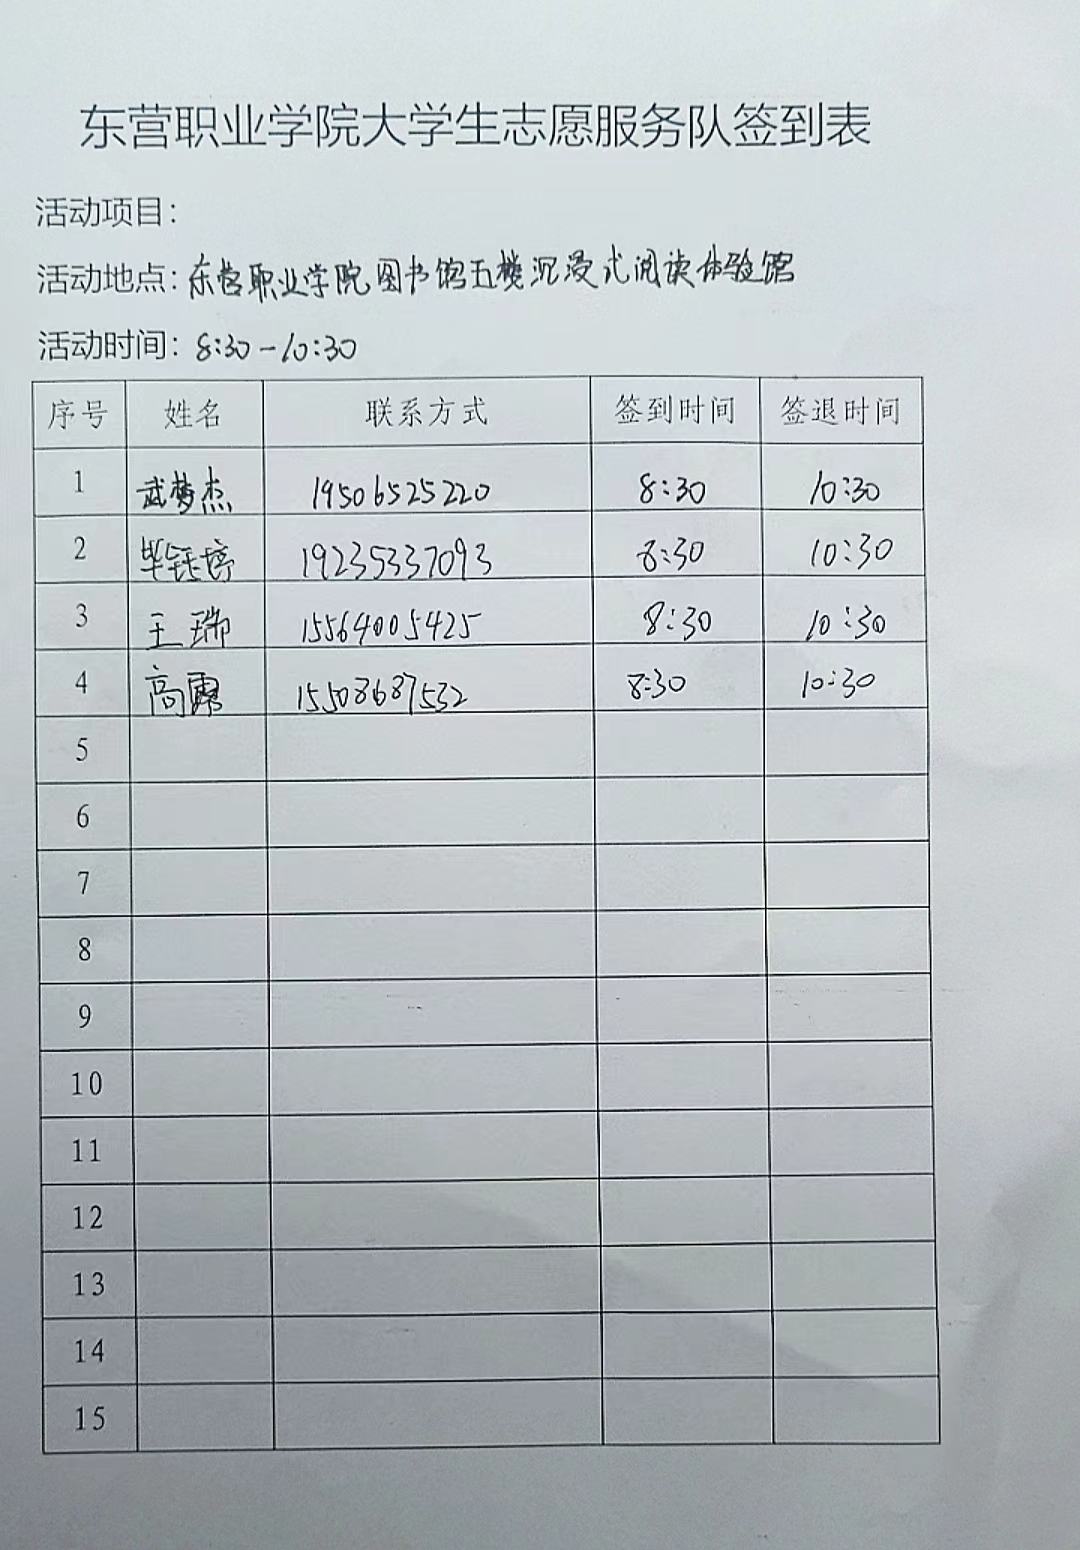 东营职业学院大学生志愿服务队签到表
活动项目：
活动地点：东营职业学院图书馆五楼沉浸式阅读体验馆
活动时间：8:30-10:30
序号 姓名 联系方式 签到时间 签退时间
1 武梦杰 19506525220 8:30 10:30
2 毕钰婷 19235337093 8:30 10:30
3 王瑞 15564005425 8:30 10:30
4 高露 15508687532 8:30 10:30
5
6
7
8
9
10
11
12
13
14
15